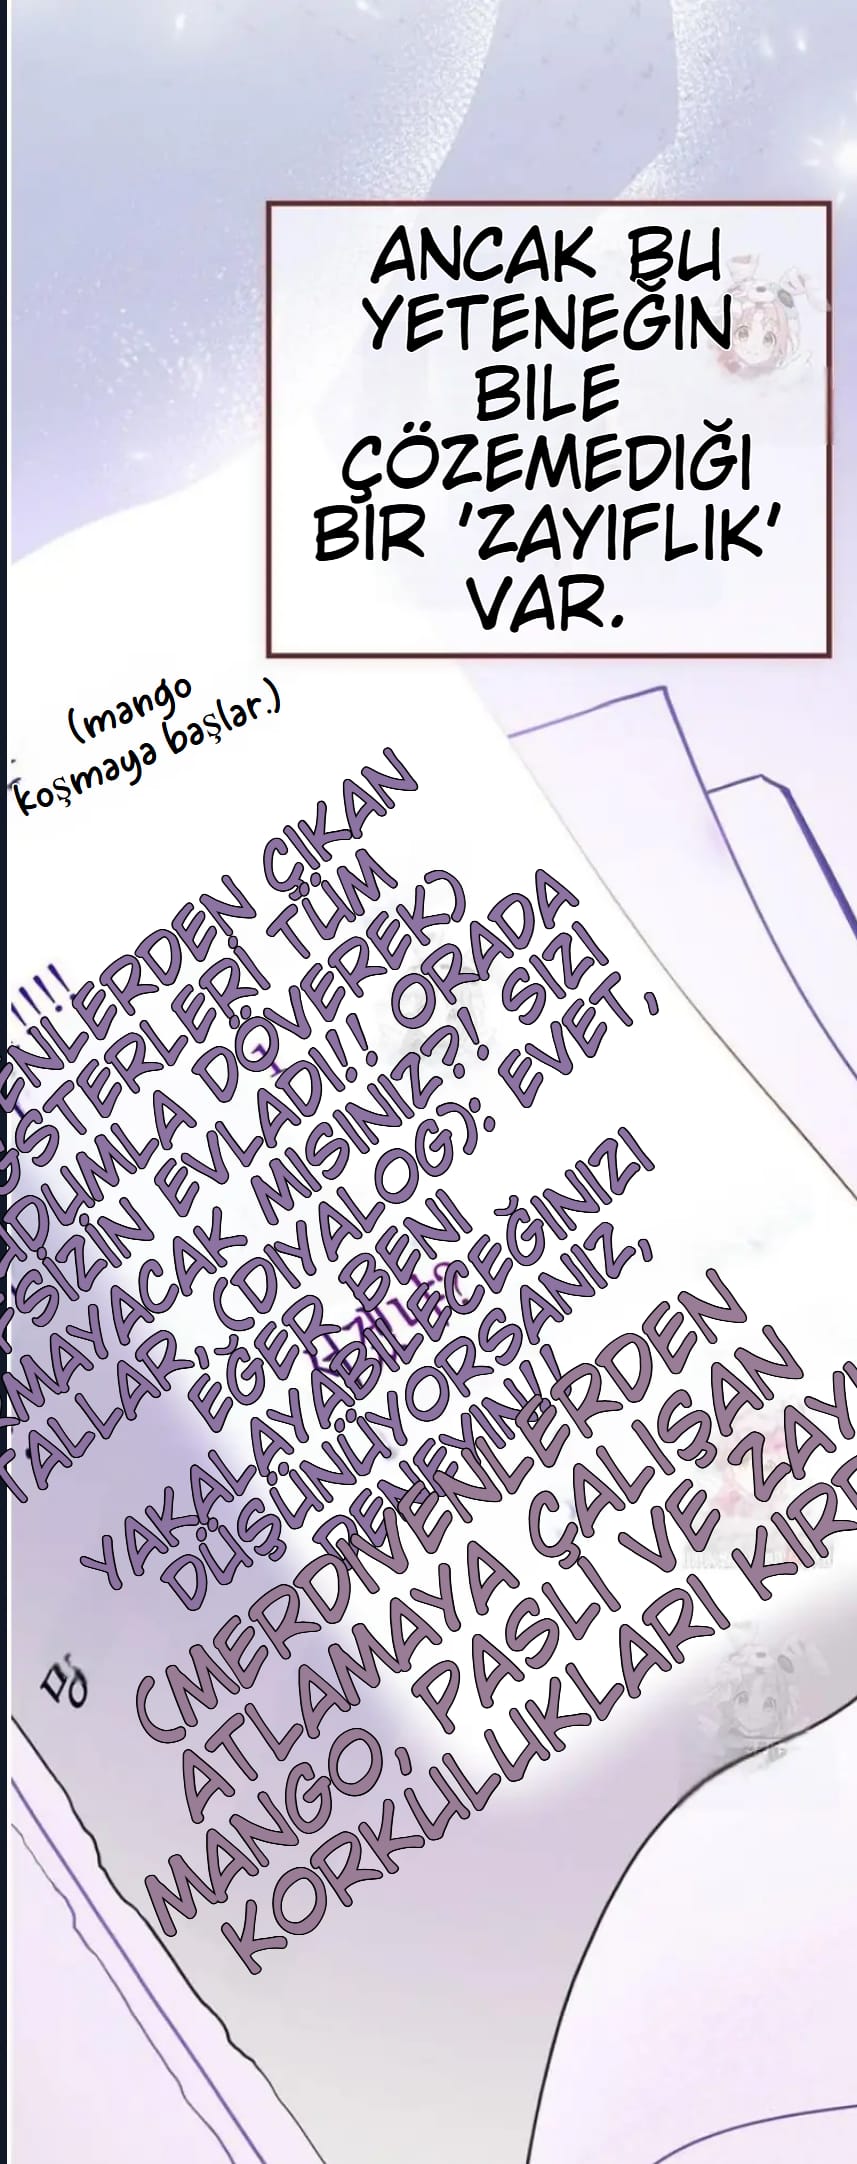 ANCAK BU
YETENEĞIN
BILE
ÇÖZEMEDIĞI
BIR 'ZAYIFLIK'
VAR.
(mango
koşmaya başlar.)
!!!!
ENLERDEN ÇIKAN
GSTERLERİ TÜM
DUMLA DÖVEREK)
TSİZİN EVLADI!! ORADA
MAYACAK MISINIZ?! SIZI
TALLAR, (DIYALOG): EVET,
EĞER BENI
YAKALAYABILECEĞINIZI
DÜŞÜNÜYORSANIZ,
DENEYIN!!
(MERDIVENLERDEN
ATLAMAYA ÇALIŞAN
MANGO, PASLI VE ZAYI
KORKULUKLARI KIRD